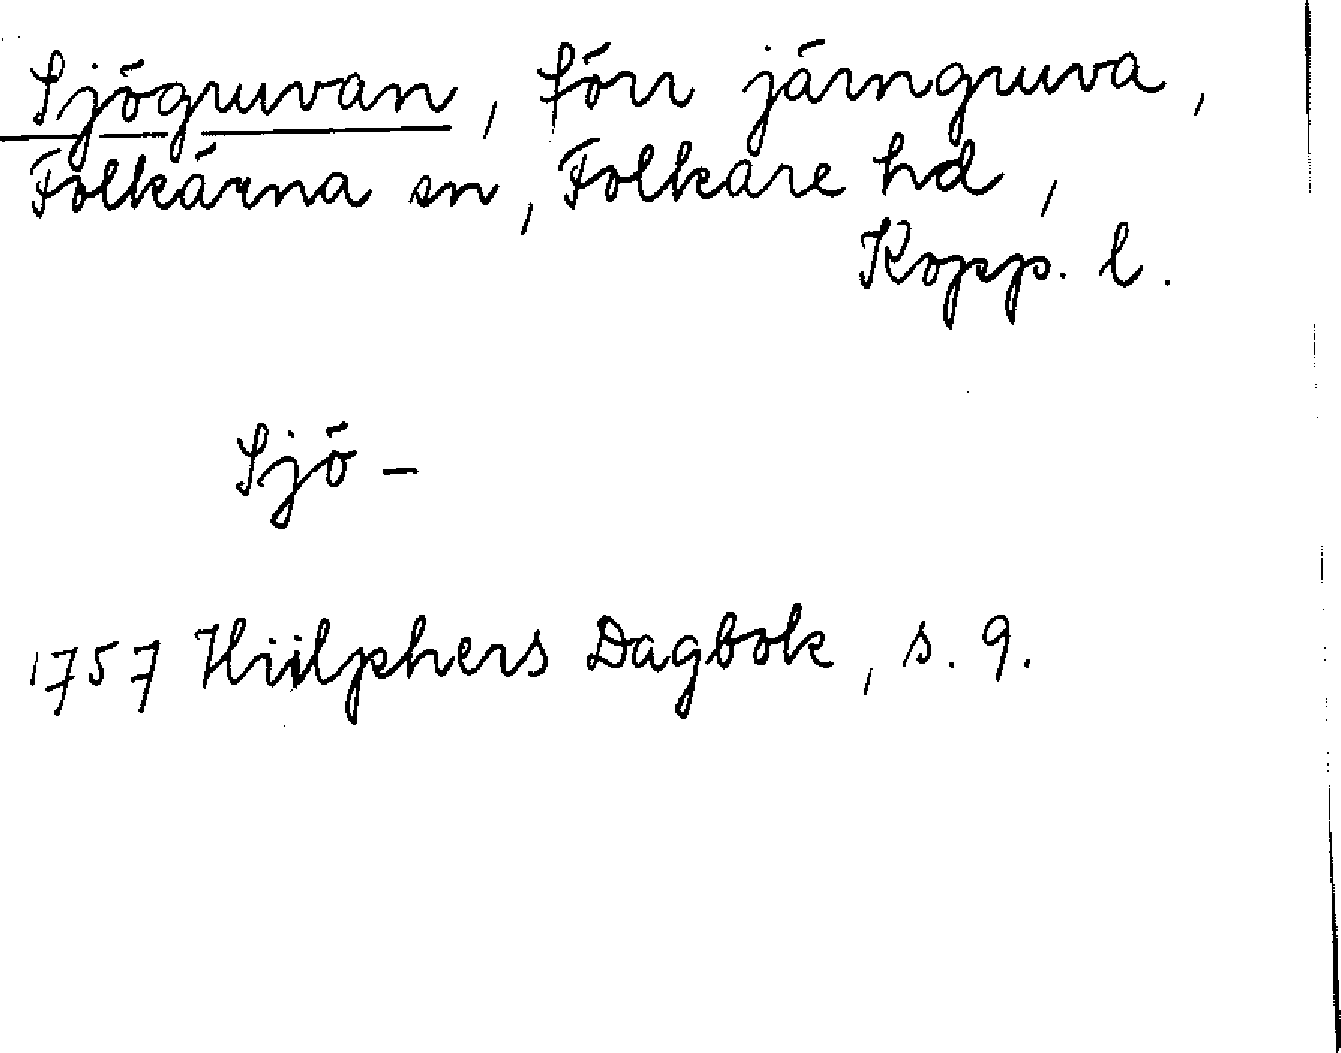 Sjögruvan, förr järngruva,
Folkärna sn, Folkare hd,
Kopp. l.
Sjö-
1757 Hülphers Dagbok, s. 9.